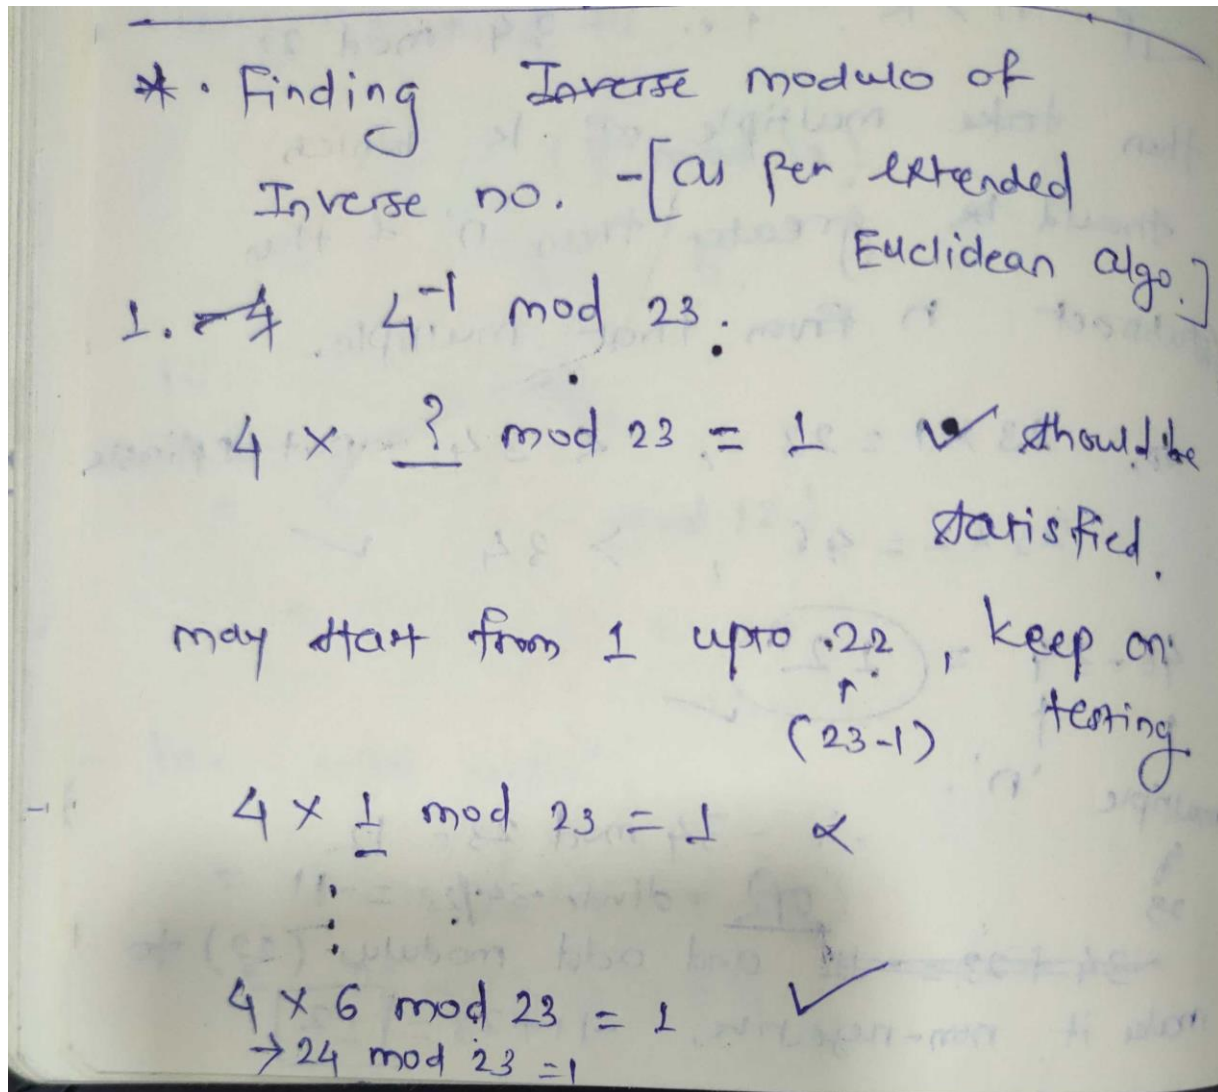 *. Finding Inverse modulo of
Inverse no. -[as per extended
Euclidean algo.]
1. 4⁻¹ mod 23.
4 x ? mod 23 = 1 ✓ should be
satisfied.
may start from 1 upto 22, keep on
↑
(23-1) testing
4 x 1 mod 23 = 1 ×
⋮
4 x 6 mod 23 = 1 ✓
→ 24 mod 23 = 1